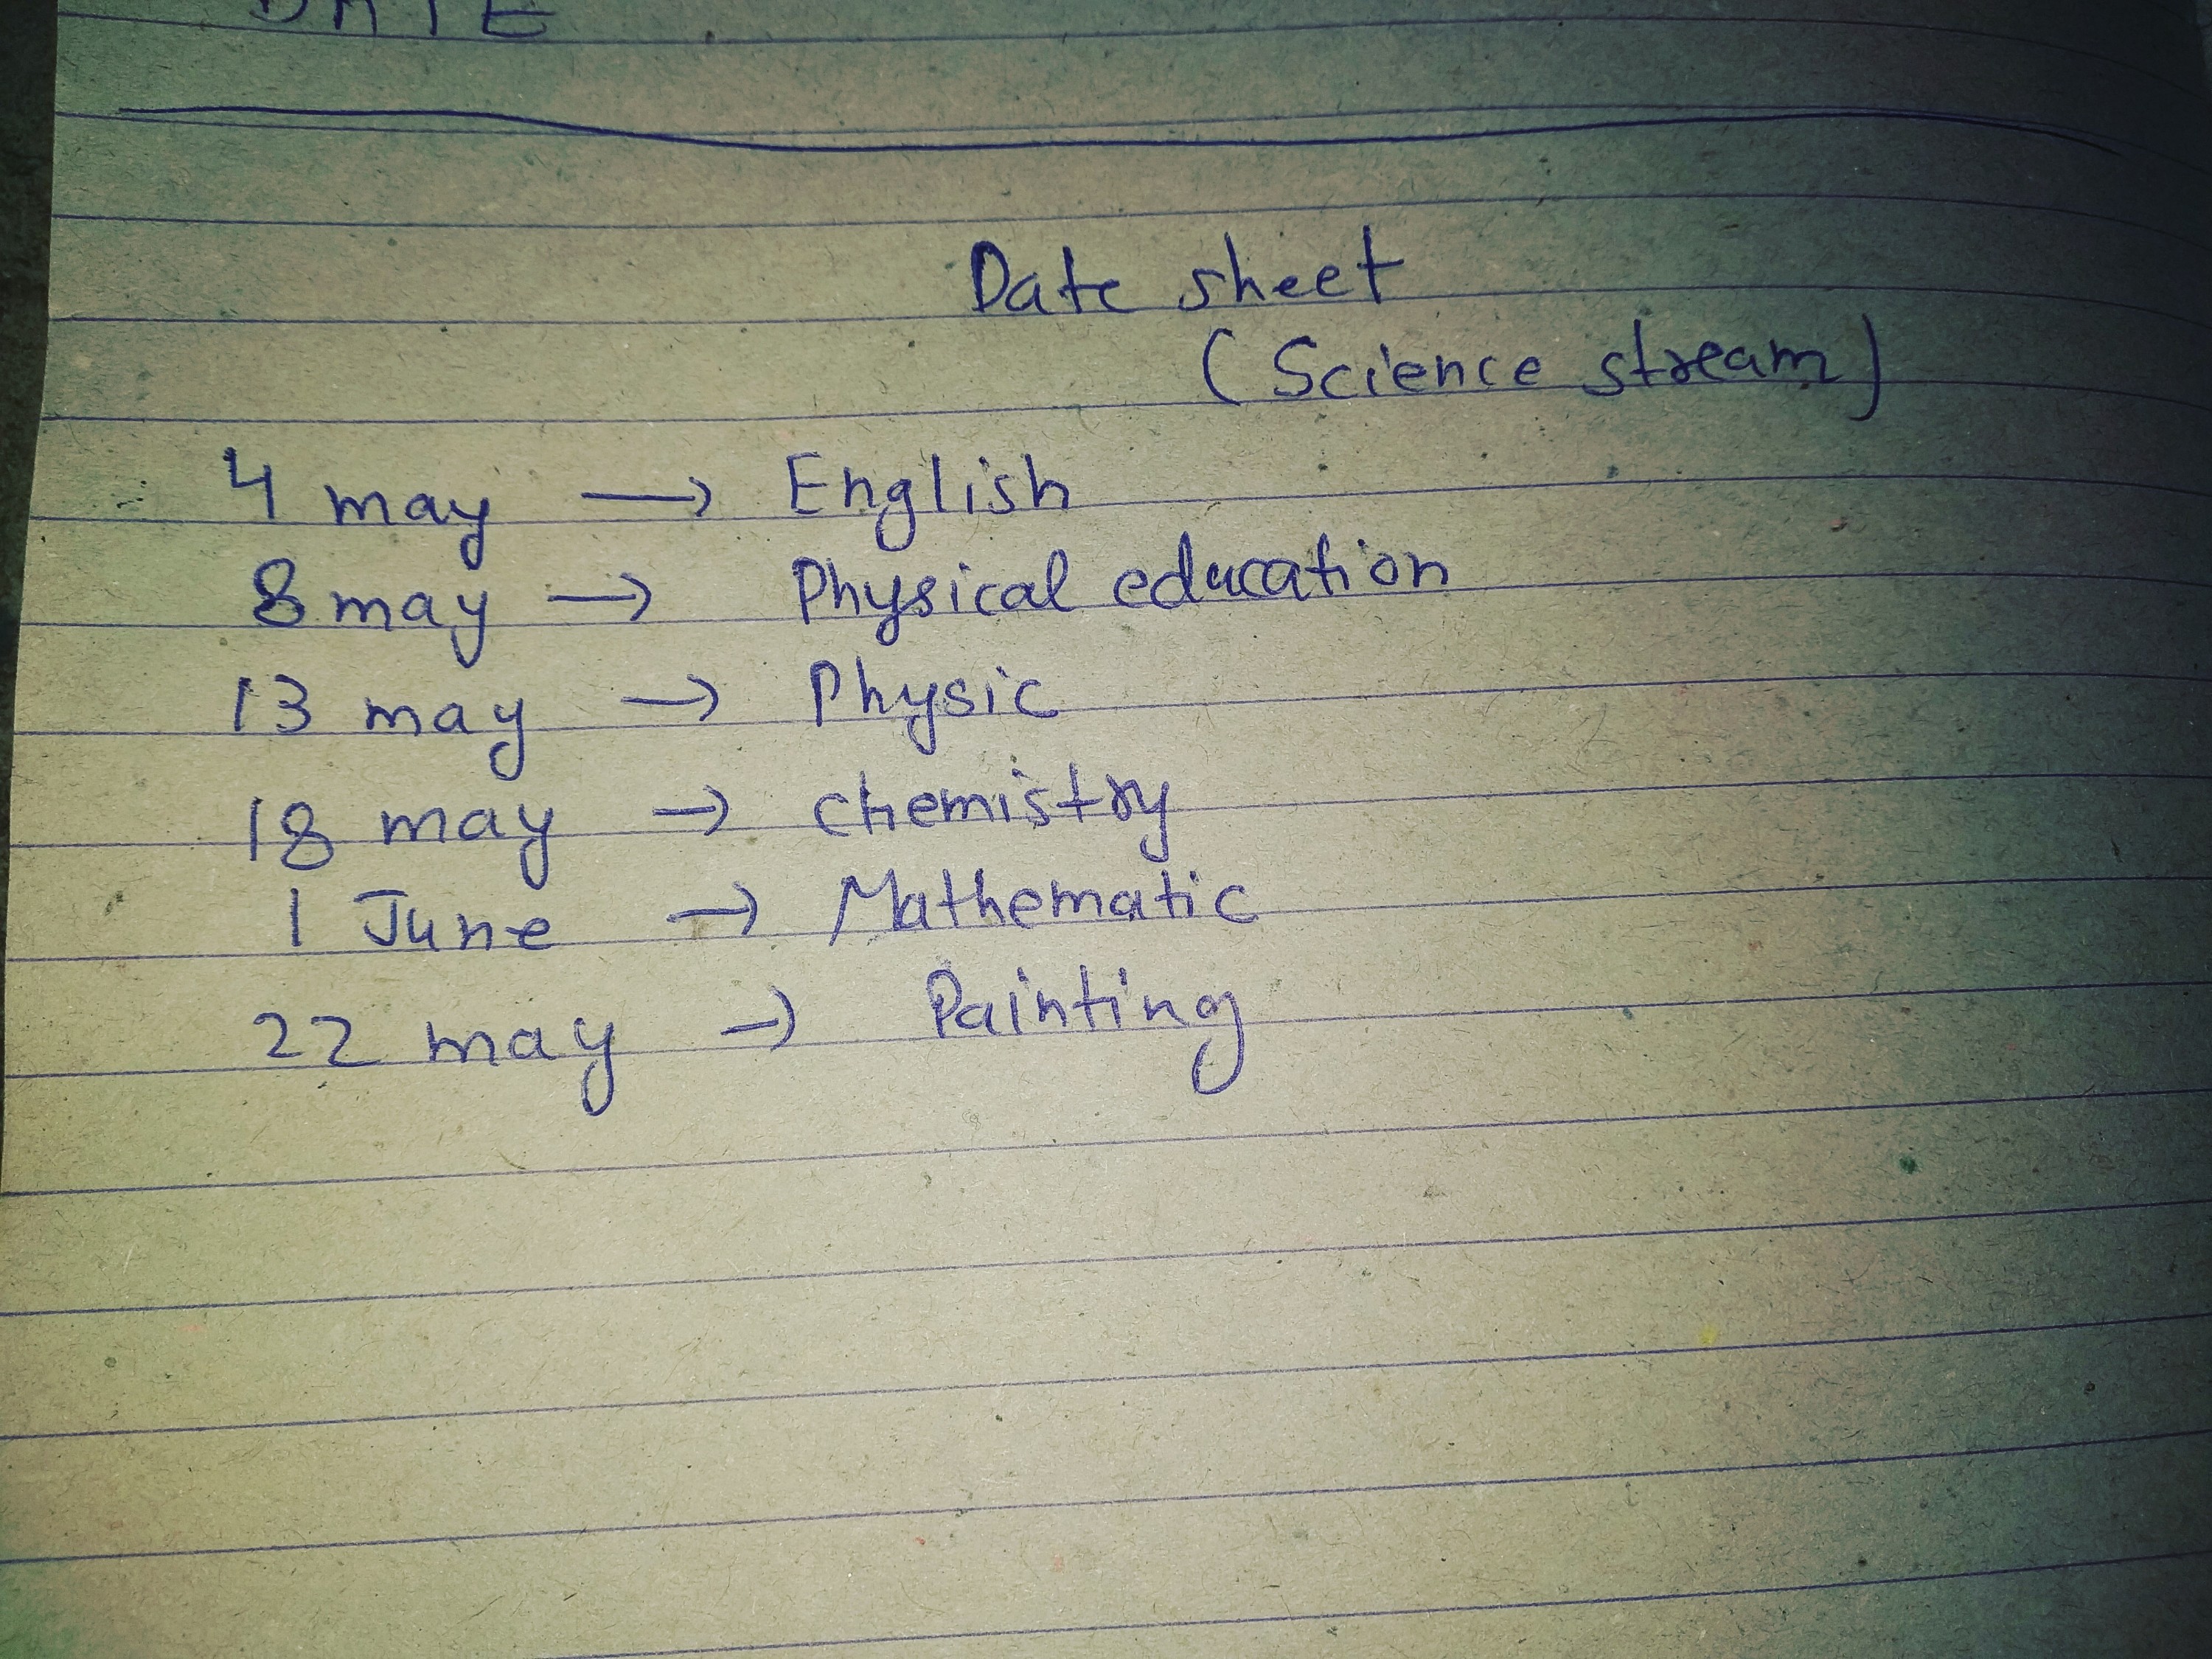 DATE
Date sheet
(Science stream)
4 may → English
8 may → Physical education
13 may → Physic
18 may → chemistry
1 June → Mathematic
22 may → Painting